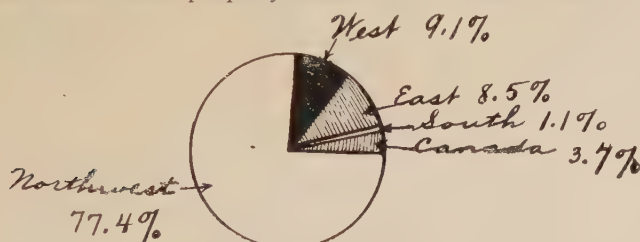 West 9.1%
East 8.5%
South 1.1%
Canada 3.7%
Northwest
77.4%